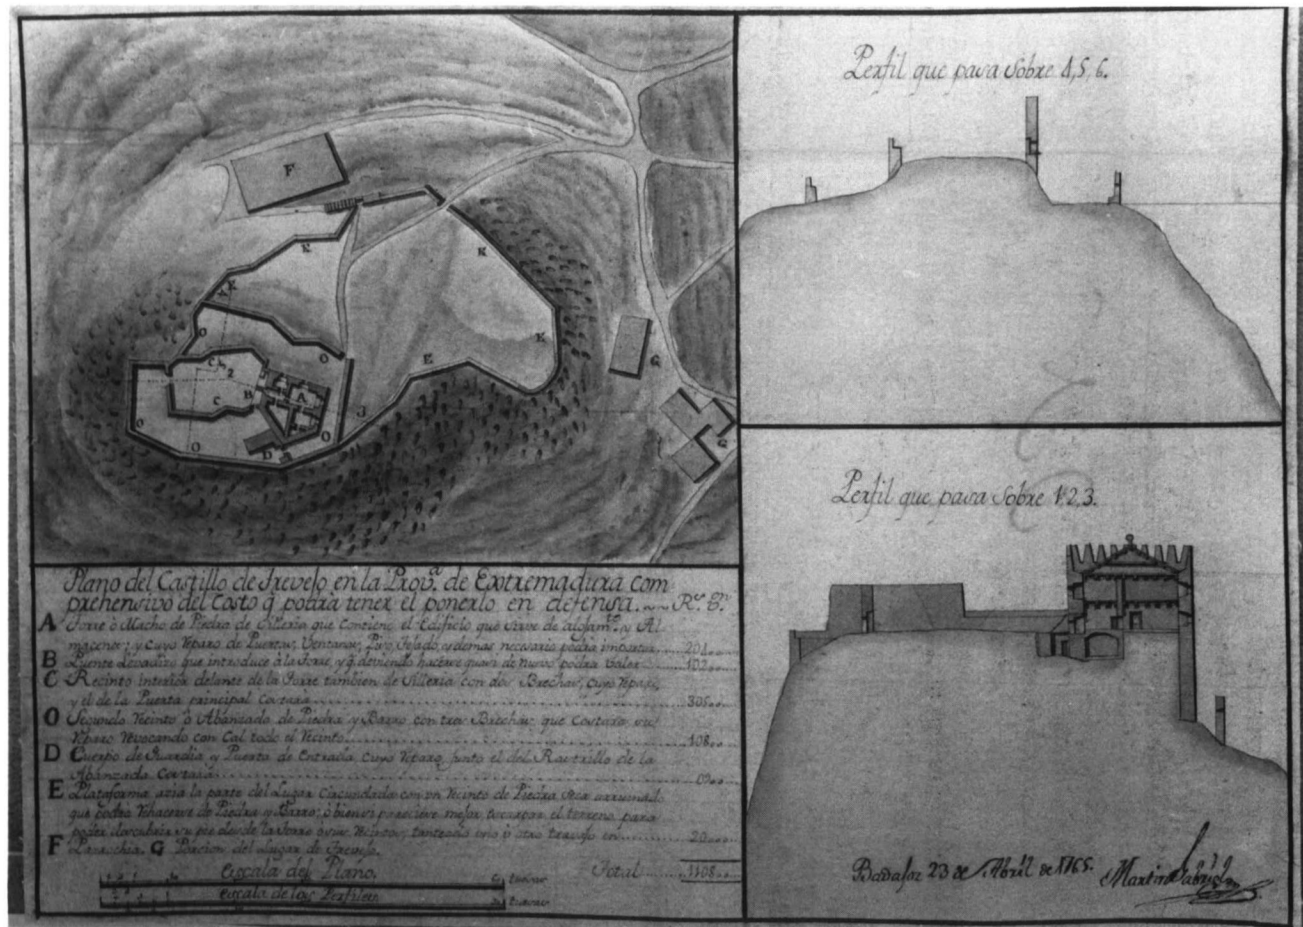 Perfil que pasa sobre 4, 5, 6.
F
K
K
K
K
E
O
O
C
2
C
B
A
J
O
O
O
D
G
G
Perfil que pasa sobre 1. 2, 3.
Plano del Castillo de Trevejo en la Prov.ª de Extremadura com
prehensivo del Costo q podrà tener el ponerlo en defensa. R.s v.n
A Torre ò Macho de Piedra de Silleria que contiene el Edificio que sirve de alojam.to y Al
macenes; y cuyo reparo de Puertas, Ventanas, Piso, Tejado, y demas necesario podrà importar
B Puente Levadizo que introduce à la Torre, y q deviendo hacerse quasi de nuevo podrà valer
C Recinto interior delante de la Torre tambien de Silleria con dos Brechas, cuyo reparo,
y el de la Puerta principal Costarà 30500
O Segundo recinto ò Abanzado de Piedra y Barro con tres Brechas que Costarà su
reparo revocando con Cal todo el recinto 10800
D Cuerpo de Guardia y Puerta de Entrada cuyo reparo, junto el del Rastrillo de la
Abanzada Costarà
E Plataforma àzia la parte del Lugar Circundada con un recinto de Piedra Seca arruinado
que podra rehacerse de Piedra y Barro: ò bien si pareciere mejor, escarpar el terreno para
poder descubrir su pie desde la torre ò sus recintos; tanteado uno ù otro travajo en 2000
F Parrochia. G Porcion del Lugar de Trevejo.
Total 110800
Escala del Plano.
Escala de los Perfiles
Badajoz 23 de Abril de 1765.
Martin Gabriel